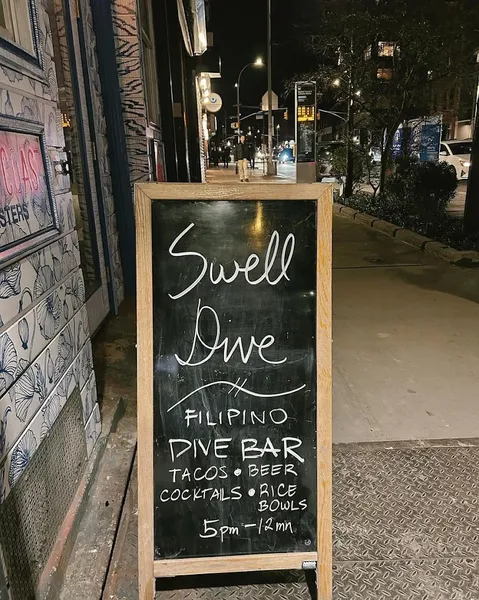 Swell
Dive
FILIPINO
DIVE BAR
TACOS • BEER
COCKTAILS • RICE
BOWLS
5pm - 12mn